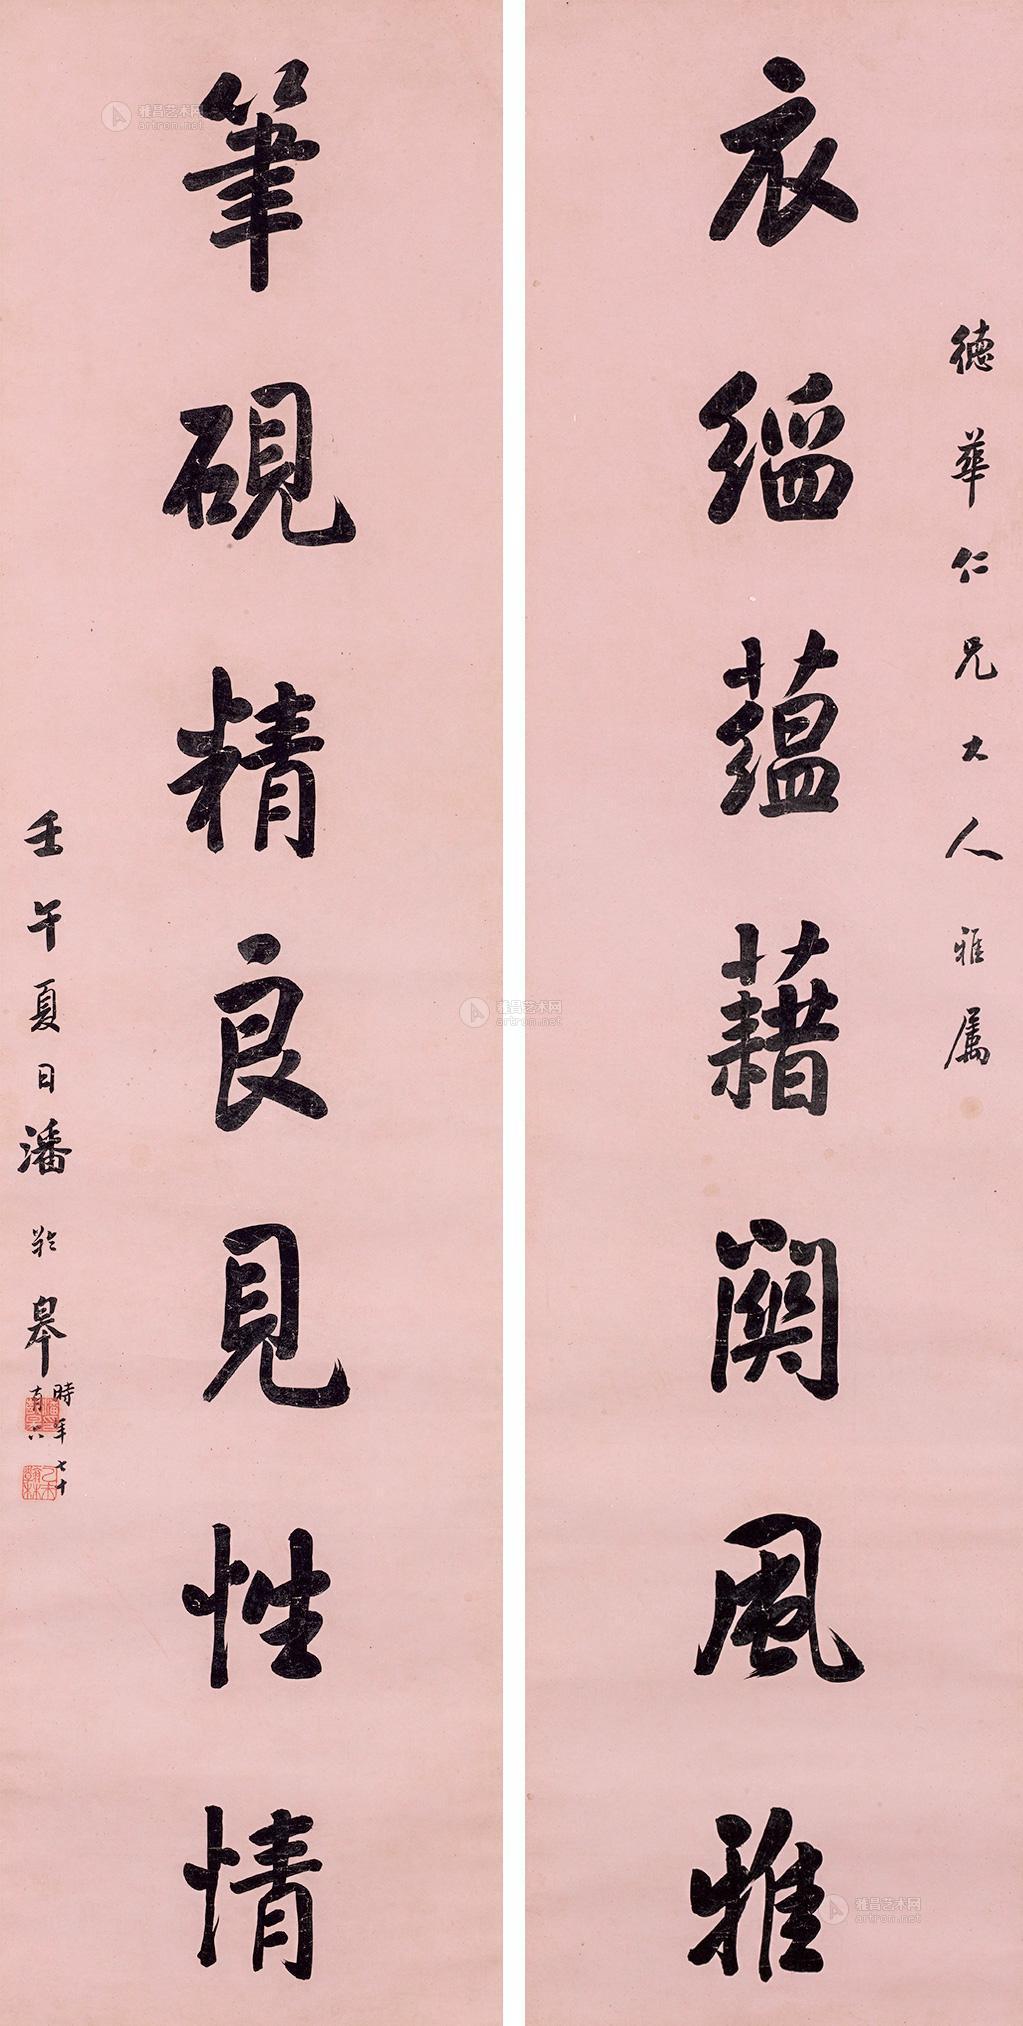 德華仁兄大人雅屬
衣縚蘊藉關風雅
筆硯精良見性情
壬午夏日潘齡皋
時年七十
有六
乙未翰林
雅昌艺术网
artron.net
雅昌艺术网
artron.net
雅昌艺术网
artron.net